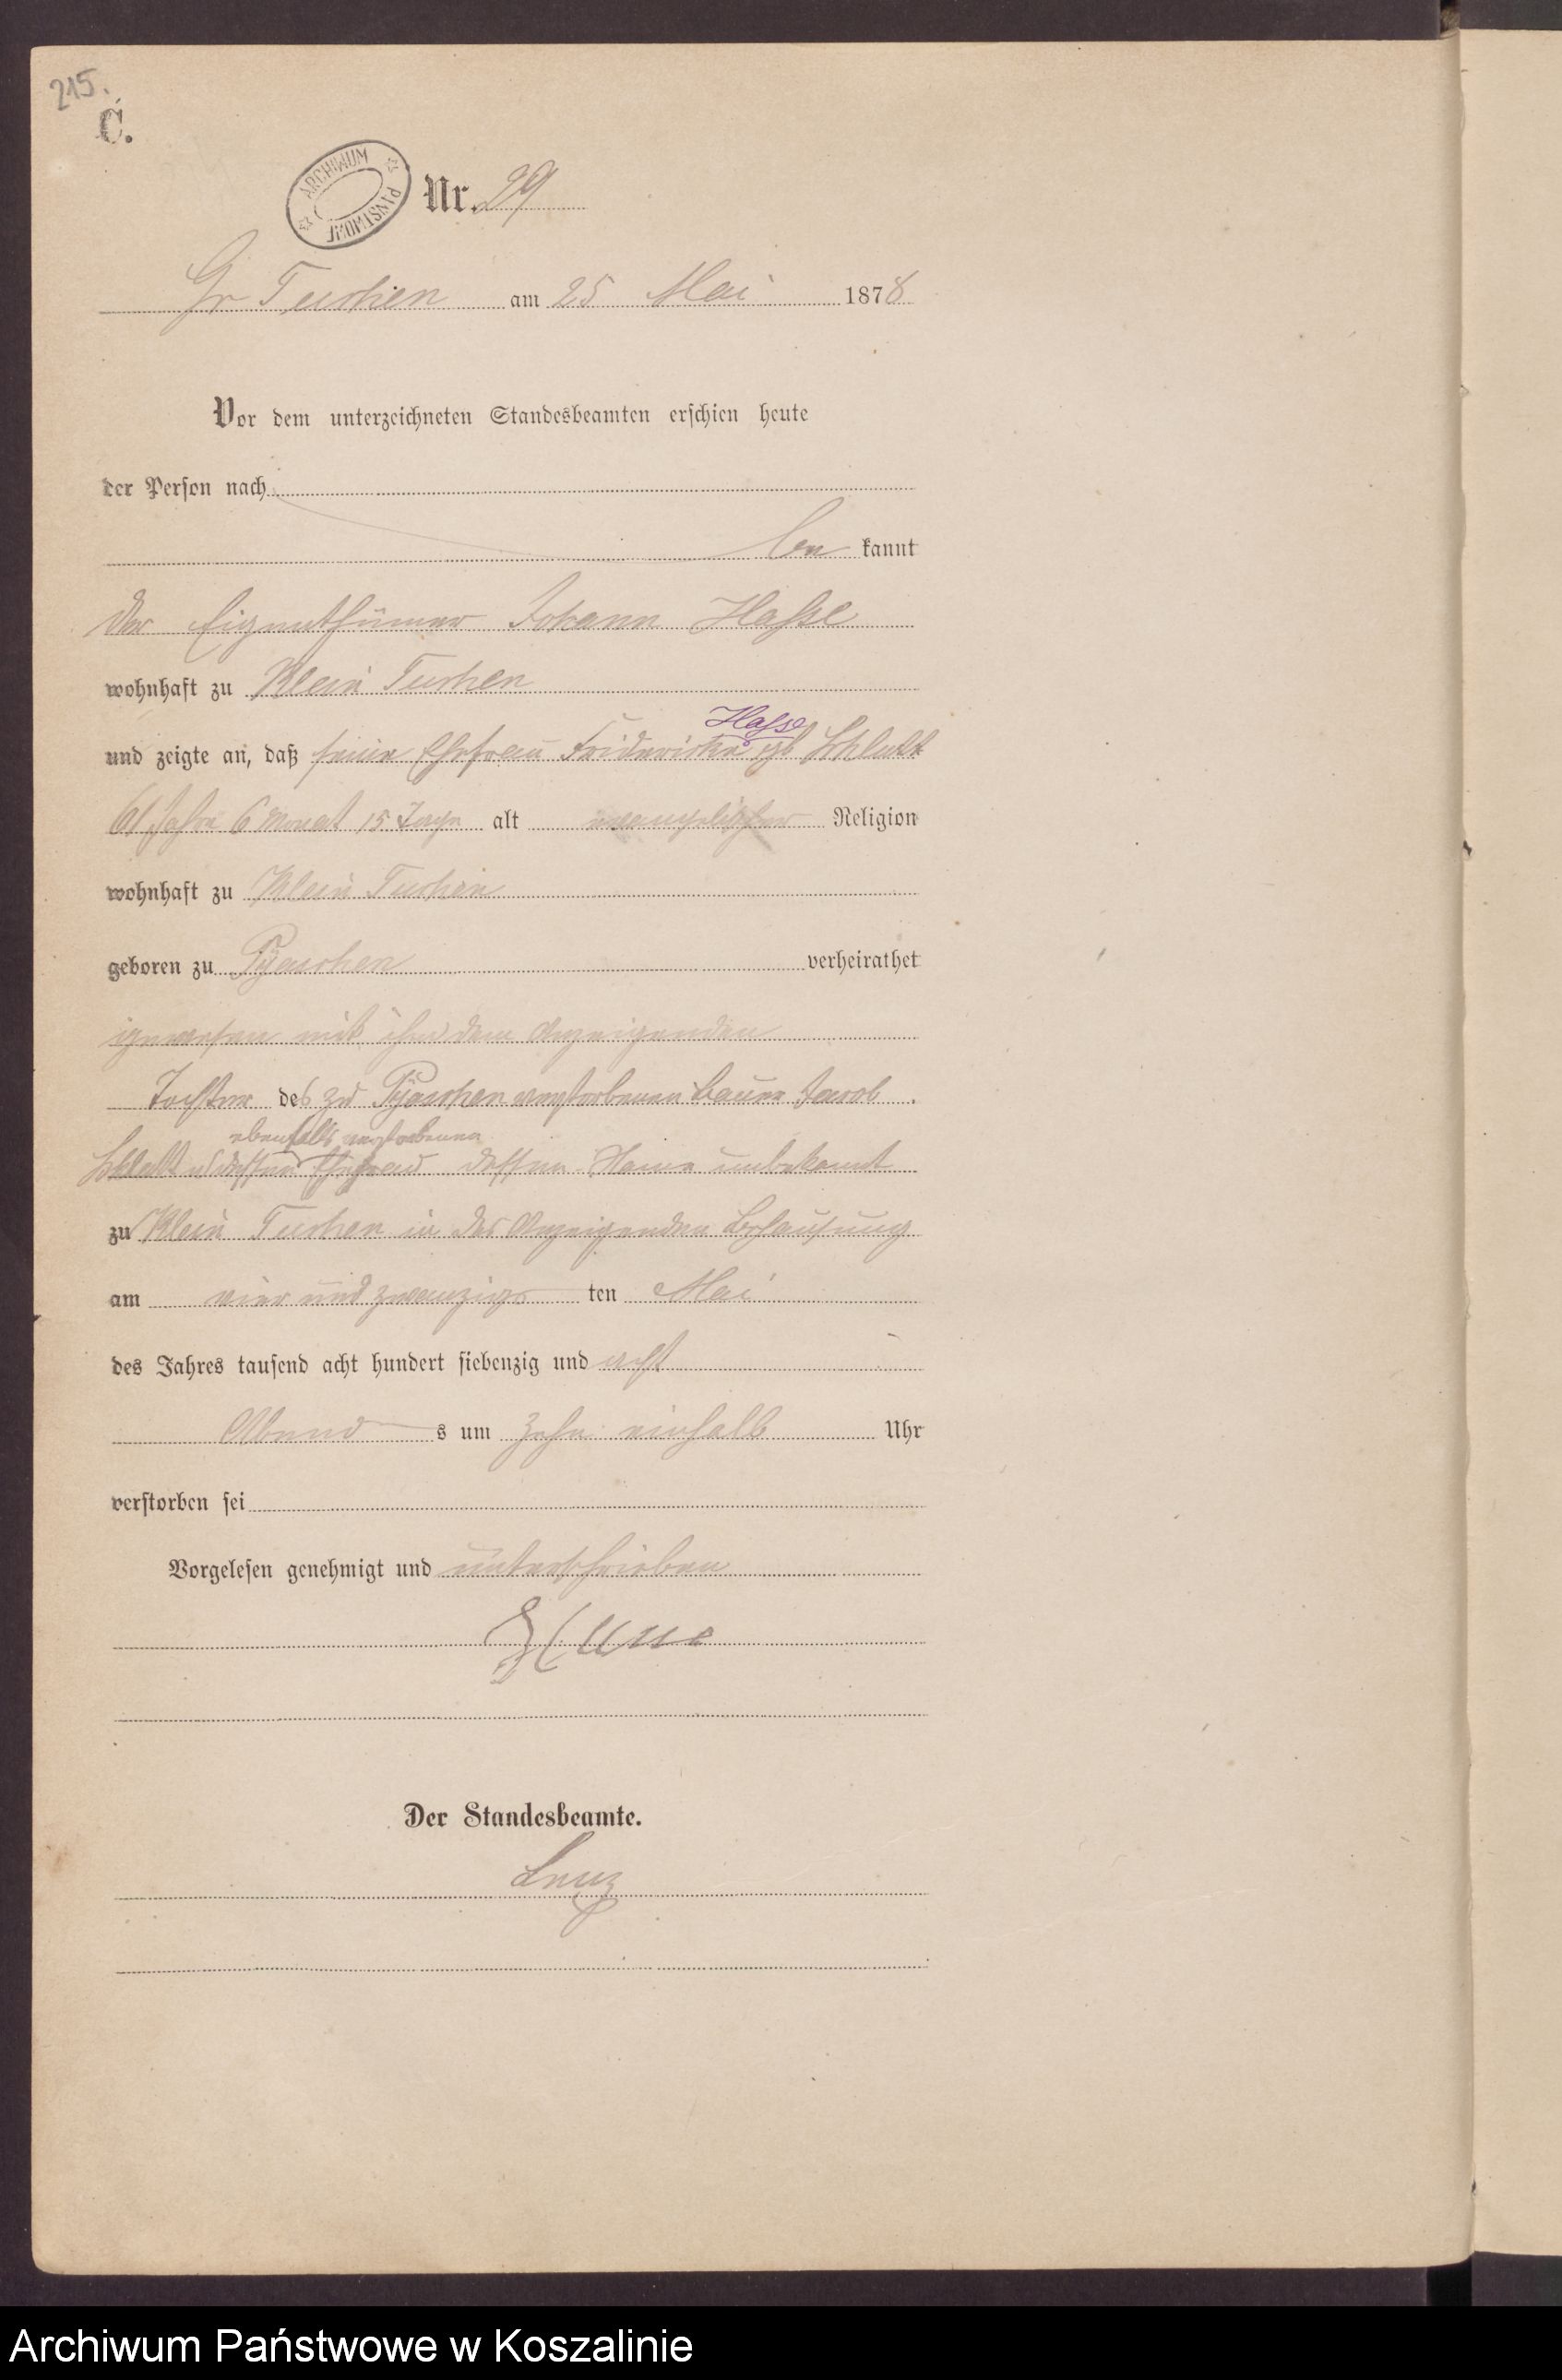 215.
C.
ARCHIWUM PAŃSTWOWE
Nr. 29
Gr Tuchen am 25 Mai 1878
Vor dem unterzeichneten Standesbeamten erschien heute
der Person nach
be kannt
der Eigenthümer Johann Hasse
wohnhaft zu Klein Tuchen
Hasse
und zeigte an, daß seine Ehefrau Friderieke geb
61 Jahre 6 Monat 15 Tage alt evangelischer Religion
wohnhaft zu Klein Tuchen
geboren zu Pyaschen verheirathet
gewesen mit ihm dem Anzeigenden
Tochter des zu Pyaschen verstorbenen Bauer Jacob
ebenfalls verstorbenen
dessen Ehefrau dessen Name unbekannt
zu Klein Tuchen in des Anzeigenden Behausung
am vier und zwanzigs ten Mai
des Jahres tausend acht hundert siebenzig und acht
Abend s um zehn einhalb Uhr
verstorben sei
Vorgelesen genehmigt und unterschrieben
Der Standesbeamte.
Archiwum Państwowe w Koszalinie